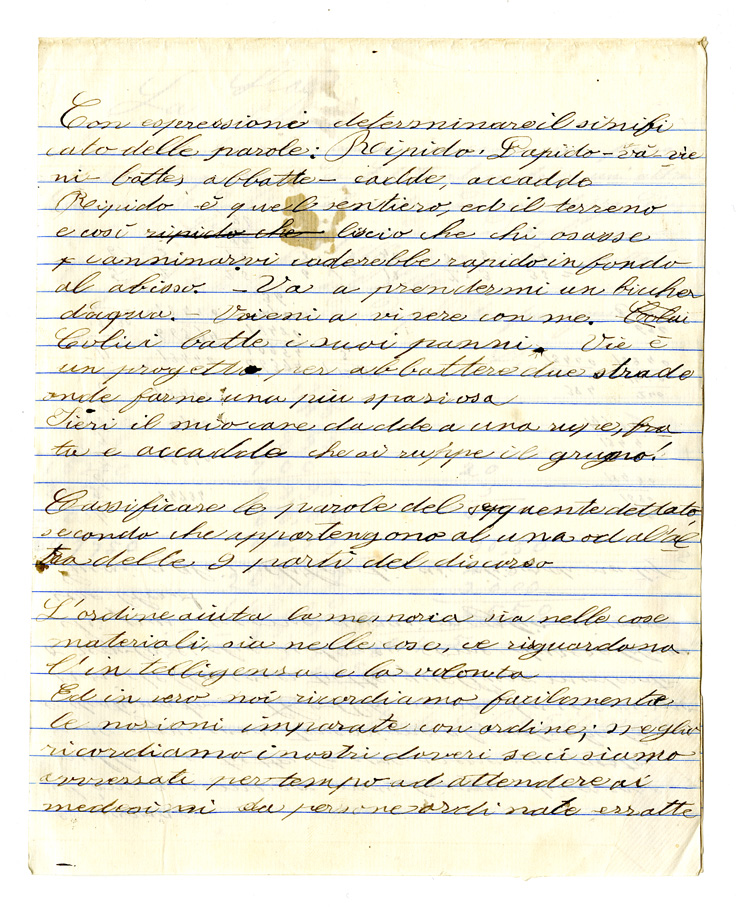 Con espressioni determinare il sinifi
cato delle parole: Ripido, Rapido - và vie
ni - batte, abbatte - cadde, accadde
Ripido è quell sentiero, ed il terreno
e così ripido che liscio che chi osasse
camminarvi caderebbe rapido in fondo
al abisso. - Va a prendermi un bicher
d'aqua. - Vieni a vivere con me. Colui
Colui batte i suoi panni. Vie è
un progetto per abbattere due strade
onde farne una più spaziosa
Ieri il mio cane cadde a una rupe, fra
ta e accadde che si ruppe il grugno!
Classificare le parole del seguente dettato
secondo che appartengono al una od all'al
tra delle 9 parti del discorso
L'ordine aiuta la memoria sia nelle cose
materiali, sia nelle cose, ce risguardano
l'intelligensa e la volonta
Ed in vero noi ricordiamo facilmente
le nosioni imparate con ordine; meglio
ricordiamo i nostri doveri se ci siamo
avvessati per tempo ad attendere ai
medesimi da persone ordinate erratte